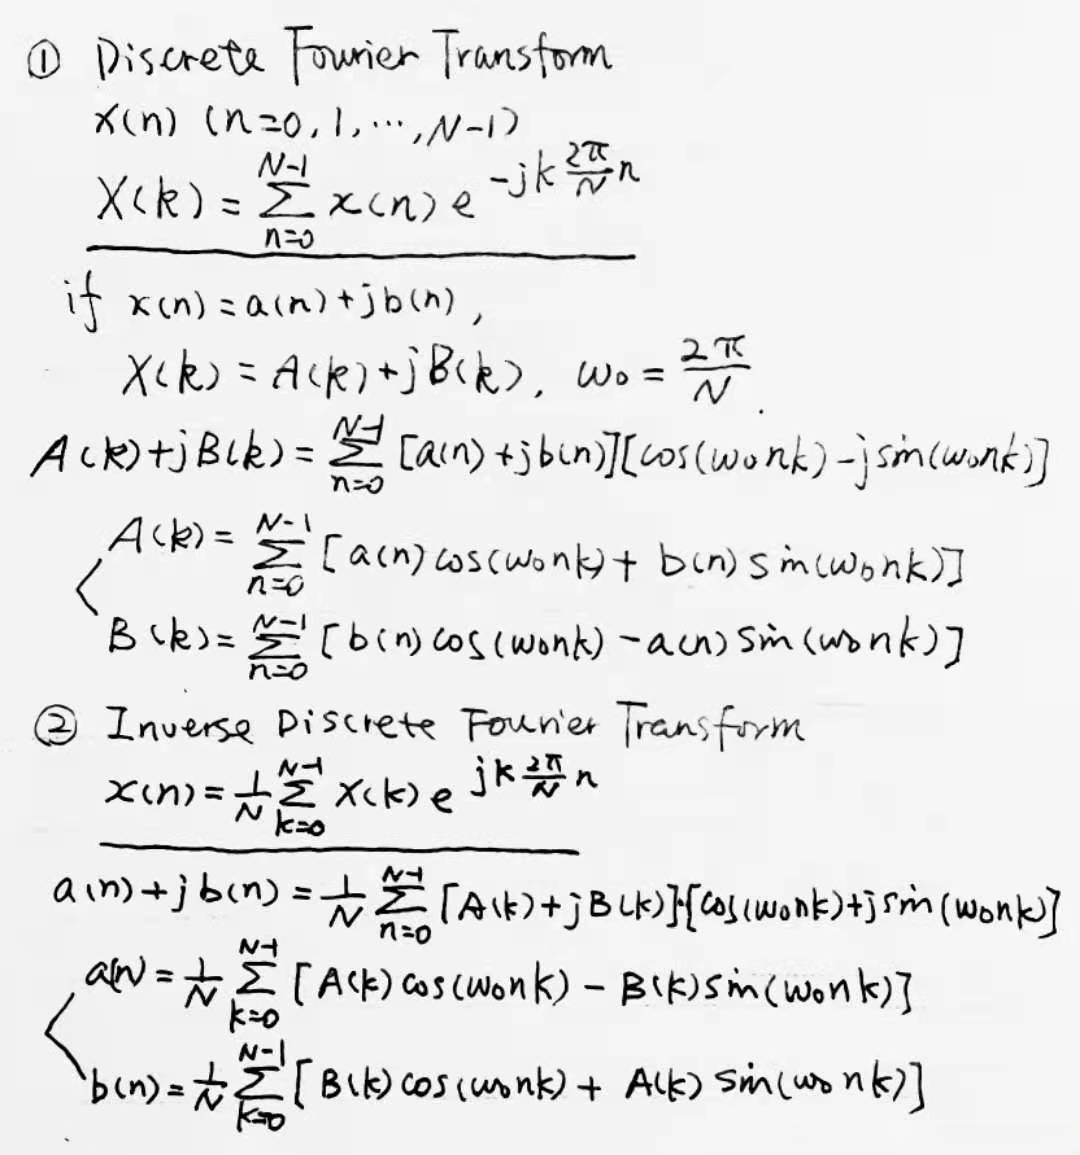 ① Discrete Fourier Transform
x(n) (n=0,1,⋯,N-1)
X(k) = \sum_{n=0}^{N-1} x(n) e^{-jk\frac{2π}{N}n}
if x(n) = a(n)+jb(n),
X(k) = A(k)+jB(k), ω₀ = \frac{2π}{N}.
A(k)+jB(k) = \sum_{n=0}^{N-1} [a(n)+jb(n)][cos(ω₀nk)-jsin(ω₀nk)]
A(k) = \sum_{n=0}^{N-1} [a(n)cos(ω₀nk)+ b(n)sin(ω₀nk)]
B(k) = \sum_{n=0}^{N-1} [b(n)cos(ω₀nk) -a(n)sin(ω₀nk)]
② Inverse Discrete Fourier Transform
x(n) = \frac{1}{N} \sum_{k=0}^{N-1} X(k) e^{jk\frac{2π}{N}n}
a(n)+jb(n) = \frac{1}{N} \sum_{n=0}^{N-1} [A(k)+jB(k)]·[cos(ω₀nk)+jsin(ω₀nk)]
a(n) = \frac{1}{N} \sum_{k=0}^{N-1} [A(k)cos(ω₀nk) - B(k)sin(ω₀nk)]
b(n) = \frac{1}{N} \sum_{k=0}^{N-1} [B(k)cos(ω₀nk) + A(k)sin(ω₀nk)]